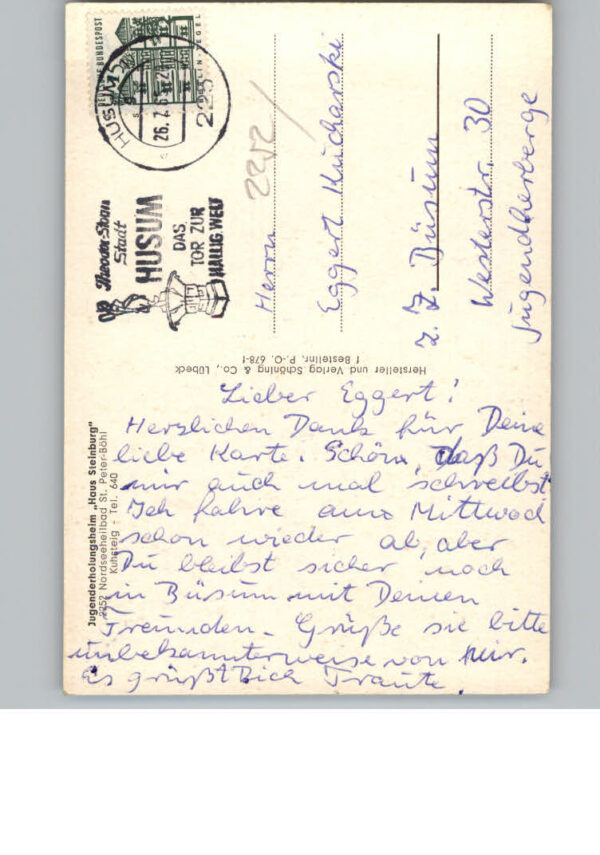 DEUTSCHE BUNDESPOST
BERLIN-TEGEL
HUSUM
26.7.
225
Theodor-Storm
Stadt
HUSUM
DAS
TOR ZUR
HALLIG WELT
2252
Herrn
Eggert Kucharski
z. Z. Büsum
Westerstr. 30
Jugendherberge
Hersteller und Verlag Schöning & Co., Lübeck
f Bestellnr. P.-O. 678-1
Jugenderholungsheim „Haus Steinburg"
2252 Nordseeheilbad St. Peter-Böhl
Kuhsteig - Tel. 640
Lieber Eggert!
Herzlichen Dank für Deine
liebe Karte. Schön, daß Du
mir auch mal schreibst.
Ich fahre am Mittwoch
schon wieder ab, aber
Du bleibst sicher noch
in Büsum mit Deinen
Freunden. Grüße sie bitte
unbekannterweise von mir.
Es grüßt Dich Traute.